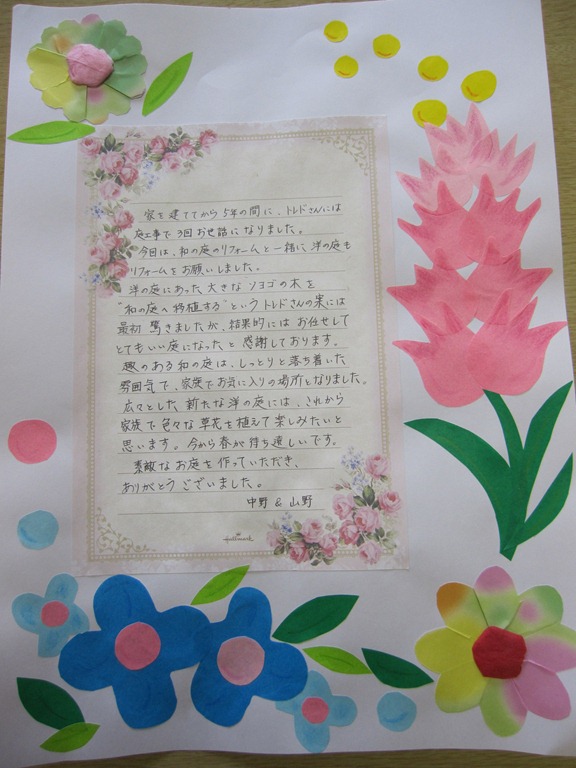 家を建ててから5年の間に、トレドさんには
庭工事で3回お世話になりました。
今回は、和の庭のリフォームと一緒に洋の庭も
リフォームをお願いしました。
洋の庭にあった大きなソヨゴの木を
"和の庭へ移植する"というトレドさんの案には
最初驚きましたが、結果的にはお任せして
とてもいい庭になったと感謝しております。
趣のある和の庭は、しっとりと落ち着いた
雰囲気で、家族でお気に入りの場所となりました。
広々とした新たな洋の庭には、これから
家族で色々な草花を植えて楽しみたいと
思います。今から春が待ち遠しいです。
素敵なお庭を作っていただき、
ありがとうございました。
中野 & 山野
Hallmark